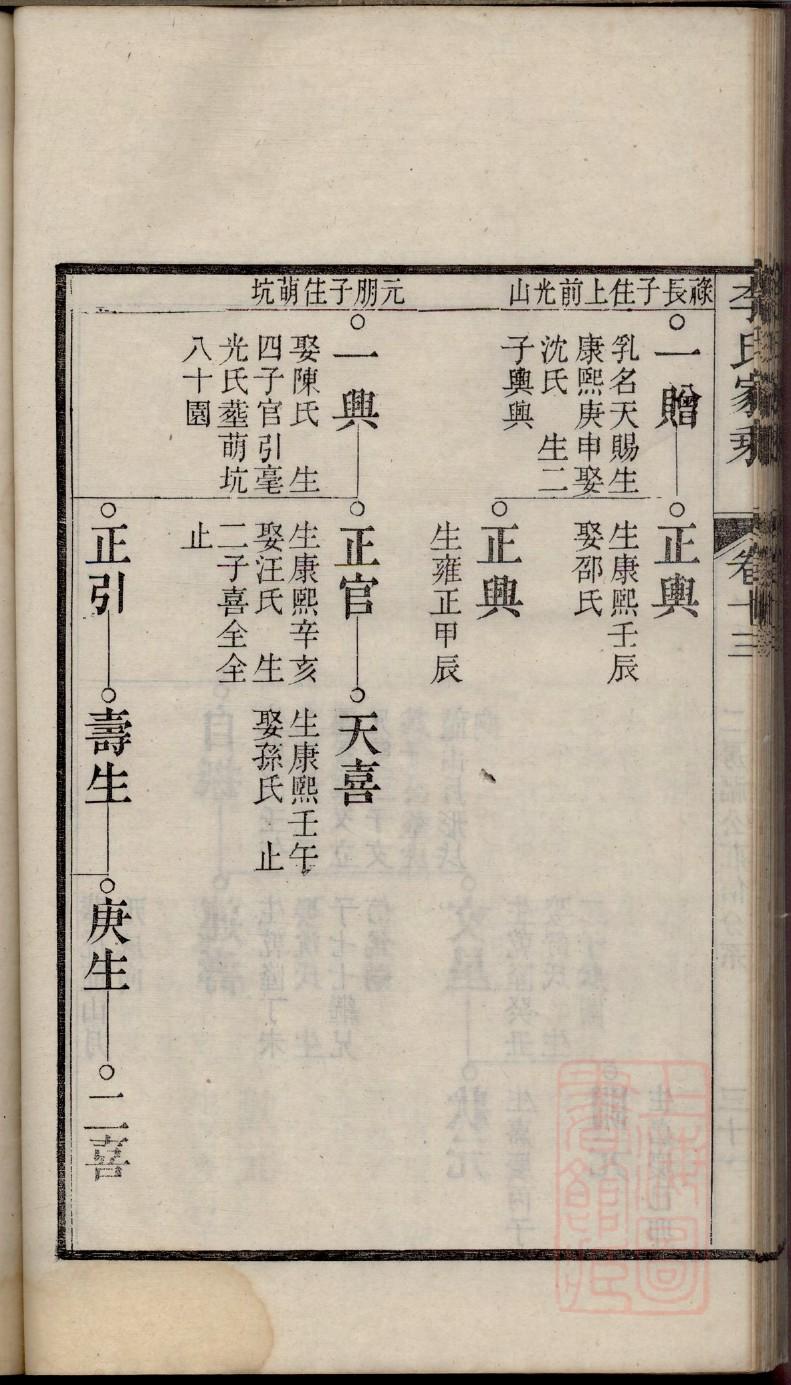 李氏家乘
卷十三
祿長子住上前光山
一贈
乳名天賜生
康熙庚申娶
沈氏　生二
子輿興
正輿
生康熙壬辰
娶邵氏
正興
生雍正甲辰
元朋子住萌坑
一興
娶陳氏　生
四子官引毫
光氏塟萌坑
八十園
正官
生康熙辛亥
娶汪氏　生
二子喜全全
止
天喜
生康熙壬午
娶孫氏　止
正引
壽生
庚生
二喜